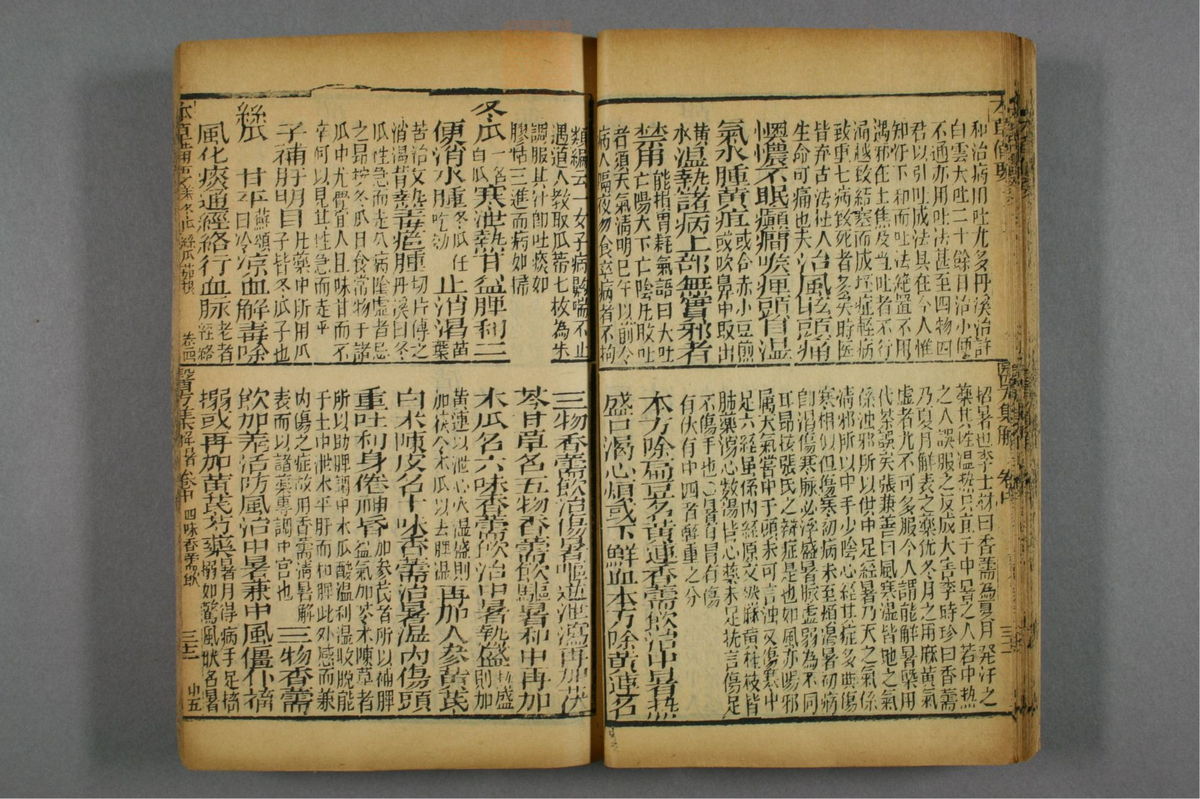 和治病用吐尤多丹溪治許
白雲大吐二十餘日治小便
不通亦用吐法甚至四物四
君以引吐成法具在今人惟
知汗下和而吐法絶置不用
遇邪在上焦及當吐者不行
涌越致結塞而成壞症輕病
致重重病致死者多矣時醫
皆弃古法枉人
生命可痛也夫治風眩頭痛
懊憹不眠癲癇喉痺頭目濕
氣水腫黃疸或合赤小豆煎或吹鼻中取出
黃水濕熱諸病上部無實邪者
禁用能損胃耗氣語曰大吐亡陽大下亡陰凡取吐
者須天氣清明巳午以前令
病人隔夜勿食卒病者不拘
招暑也李士材曰香薷為夏月發汗之
藥其性溫熱宜于中暑之人若中熱
之人誤服之反成大害李時珍曰香薷
乃夏月解表之藥優冬月之用麻黃氣
虛者尤不可多服今人謂能解暑
代茶誤矣張兼善曰風寒濕皆地之氣
係浊邪所以俱中足經暑乃天之氣係
清邪所以中手少陰心經其症多與傷
寒相似但傷寒初病未至煩渴暑初病
即渴傷寒脉必浮盛暑脉虛弱為不同
耳昂按張氏之辯症是也如風亦陽邪
属天氣嘗中于頭未可言浊又傷寒中
足六經雖係內經原文然麻黃桂枝皆
肺藥瀉心數湯皆心藥未足抚言傷足
不傷手也暑有冒有傷
有伏有中四者輕重之分
本方除扁豆名黃連香薷飲治中暑熱
盛口渴心煩或下鮮血本方除黃連名
類編云一女子病齁喘不止
遇道人教取瓜蒂七枚為末
調服其汁即吐痰如
膠粘三進而病如掃
冬瓜一名白瓜寒泄熱甘益脾利二
便消水腫冬瓜任用吃効止消渴苗葉
苦治文熱毒癰腫切片傅之
消渴皆善丹溪曰冬
瓜性急而走久病陰虛者忌
之昂按冬瓜日食常物于諸
瓜中尤覺宜人且味甘而不
辛何以見其性急而走乎
子補肝明目凡藥中所用瓜子皆冬瓜子也
絲瓜甘平蘇頌曰冷涼血解毒除
風化痰通經絡行血脉老者
三物香薷飲治傷暑嘔逆泄瀉再加茯
苓甘草名五物香薷飲驅暑和中再加
木瓜名六味香薷飲治中暑熱盛則加
黃連以泄心火濕盛則
加茯苓木瓜以去脾濕再加人參黃芪
白朮陳皮名十味香薷治暑濕內傷頭
重吐利身倦神昏加參芪者所以補脾益氣加苓朮陳草者
所以助脾調中木瓜酸溫利濕收脫能
于土中泄水平肝而和脾此外感而兼
內傷之症故用香薷清暑解
表而以諸藥專調中宮也三物香薷
飲加羌活防風治中暑兼中風僵仆搐
搦或再加黃芪芍藥暑月得病手足搐搦如驚風狀名暑